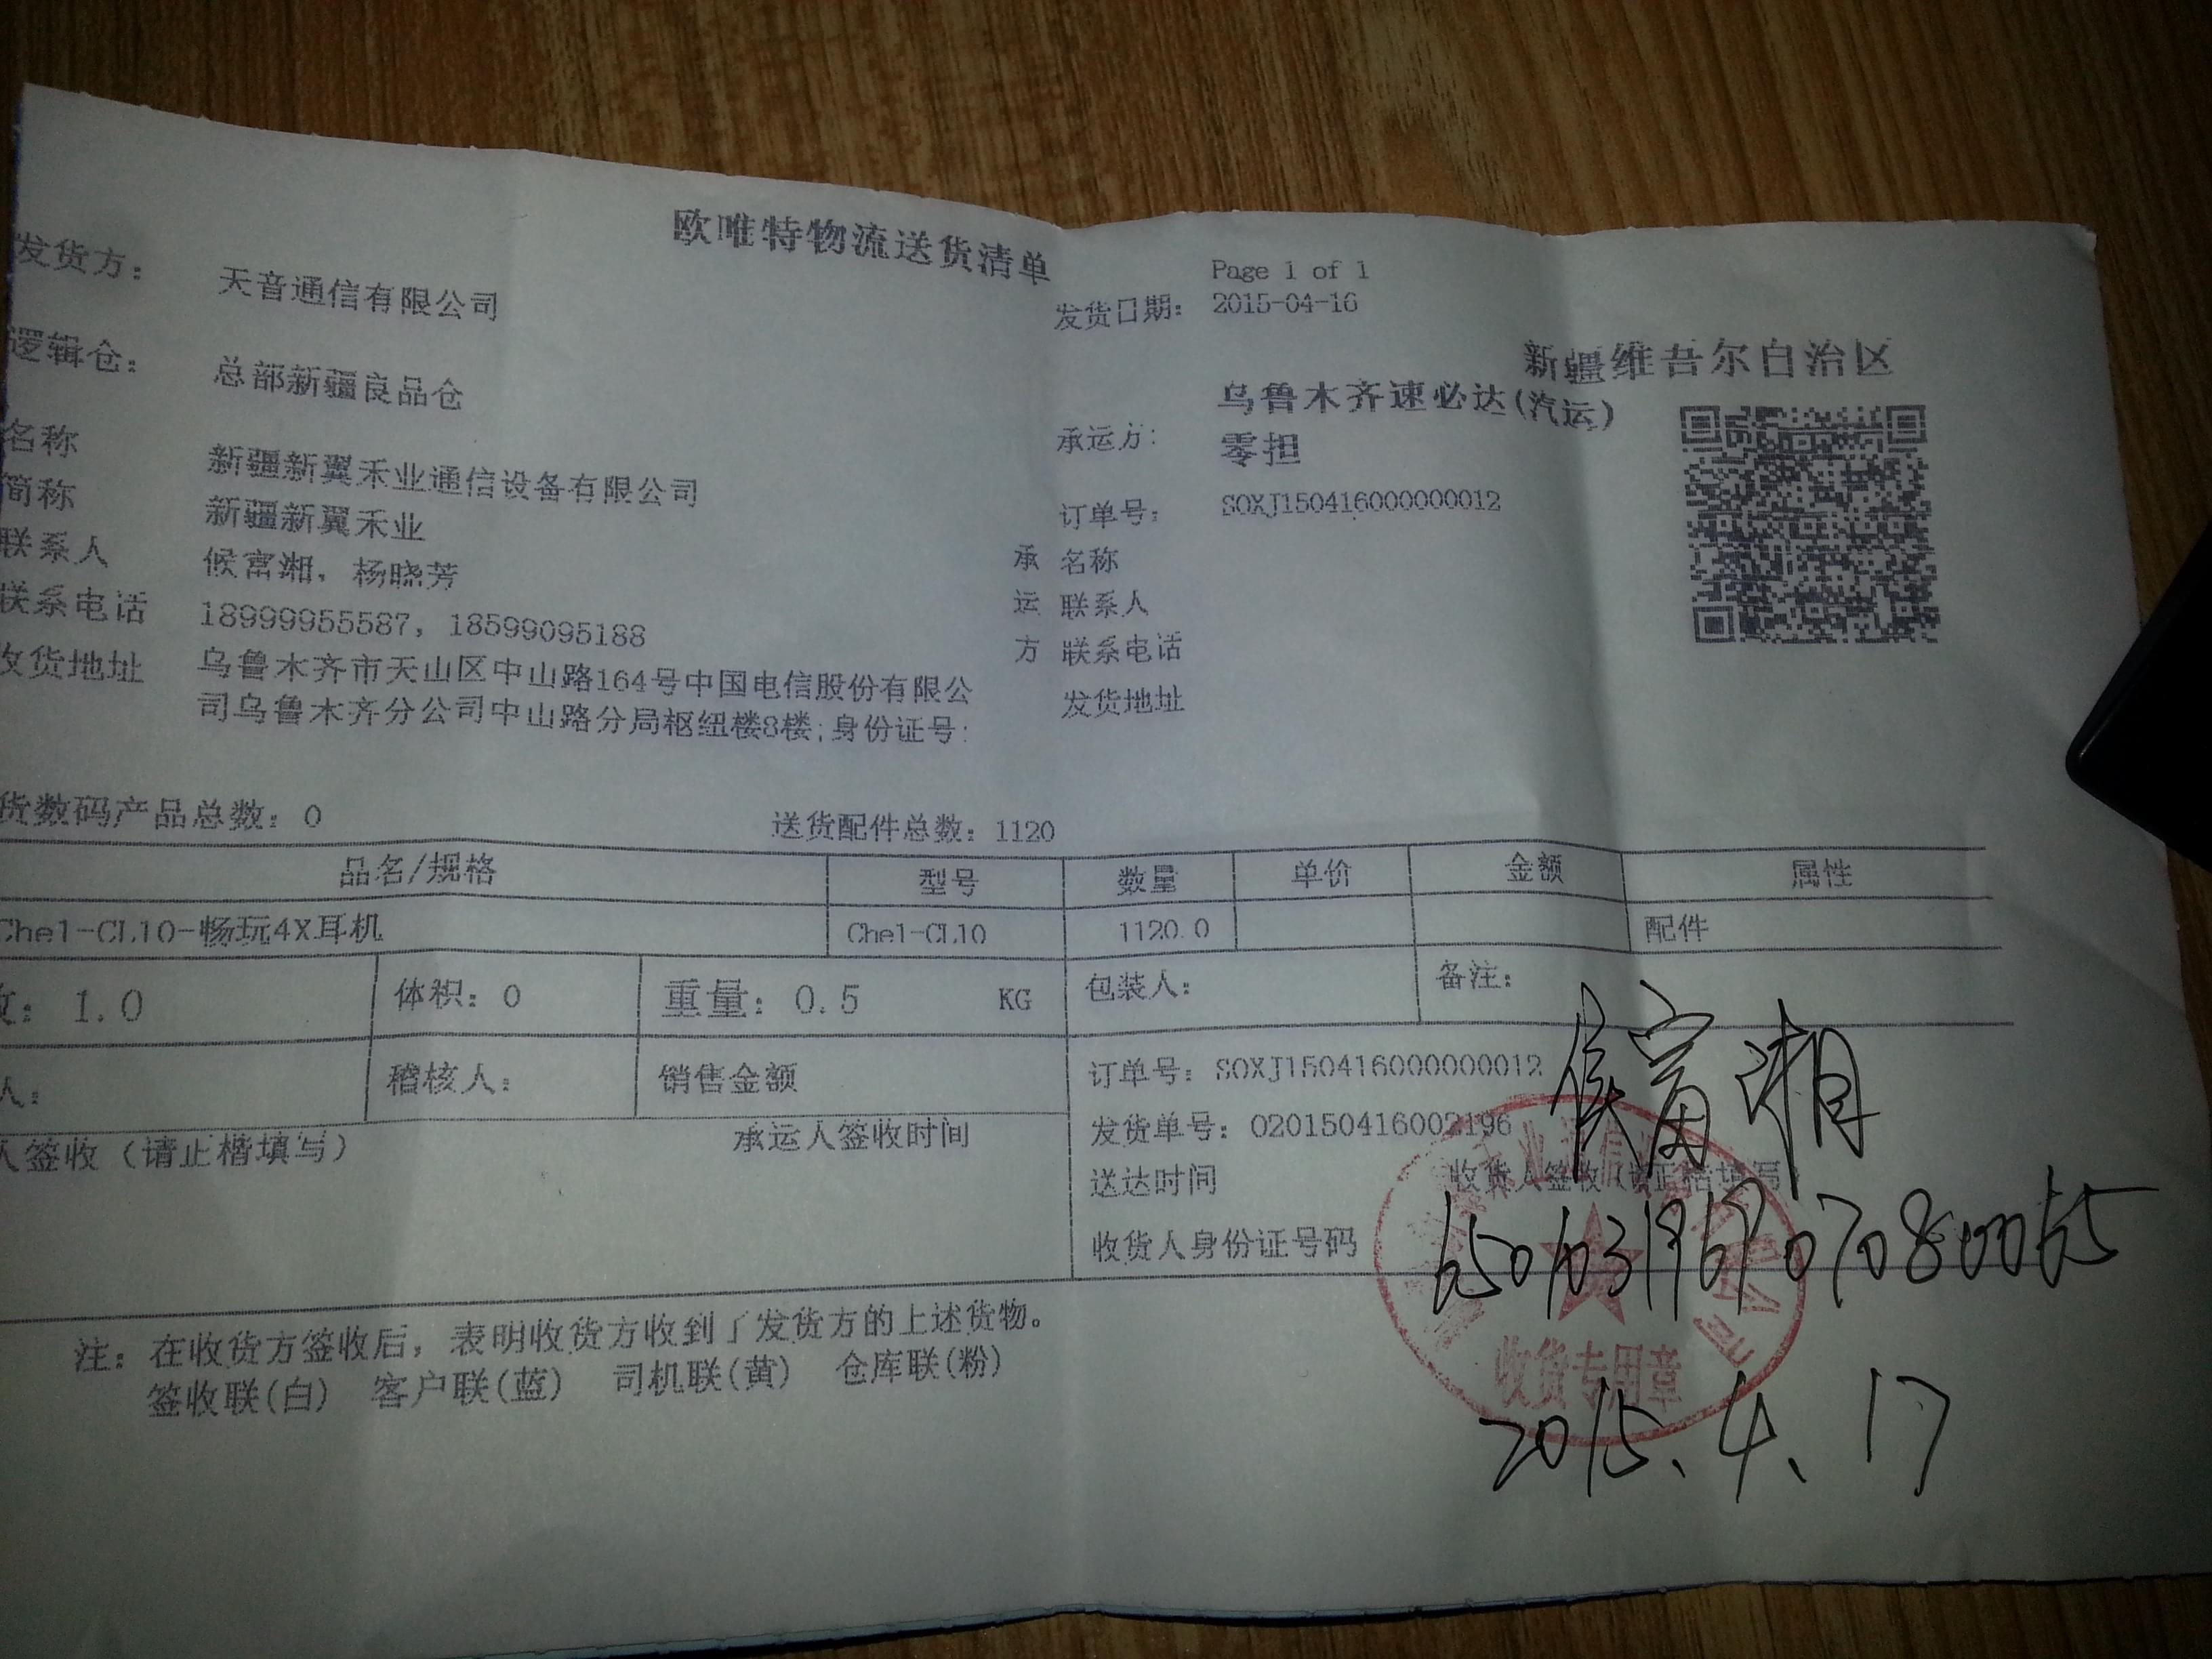 欧唯特物流送货清单
Page 1 of 1
发货方： 天音通信有限公司 发货日期： 2015-04-16
新疆维吾尔自治区
逻辑仓： 总部新疆良品仓
承运方： 乌鲁木齐速必达(汽运)
零担
名称 新疆新翼禾业通信设备有限公司
订单号： SOXJ150416000000012
简称 新疆新翼禾业
承 名称
联系人 候富湘，杨晓芳
运 联系人
联系电话 18999955587，18599095188
方 联系电话
收货地址 乌鲁木齐市天山区中山路164号中国电信股份有限公
司乌鲁木齐分公司中山路分局枢纽楼8楼;身份证号:
发货地址
货数码产品总数：0 送货配件总数：1120
品名/规格 型号 数量 单价 金额 属性
Che1-CL10-畅玩4X耳机 Che1-CL10 1120.0 配件
：1.0 体积：0 重量：0.5 KG 包装人： 备注：
人： 稽核人： 销售金额 订单号：SOXJ150416000000012
侯富湘
人签收（请正楷填写） 承运人签收时间 发货单号：020150416002196
送达时间 收货人签收（请正楷填写
收货人身份证号码 650103196907080065
收货专用章
2015.4.17
注：在收货方签收后，表明收货方收到了发货方的上述货物。
签收联(白) 客户联(蓝) 司机联(黄) 仓库联(粉)